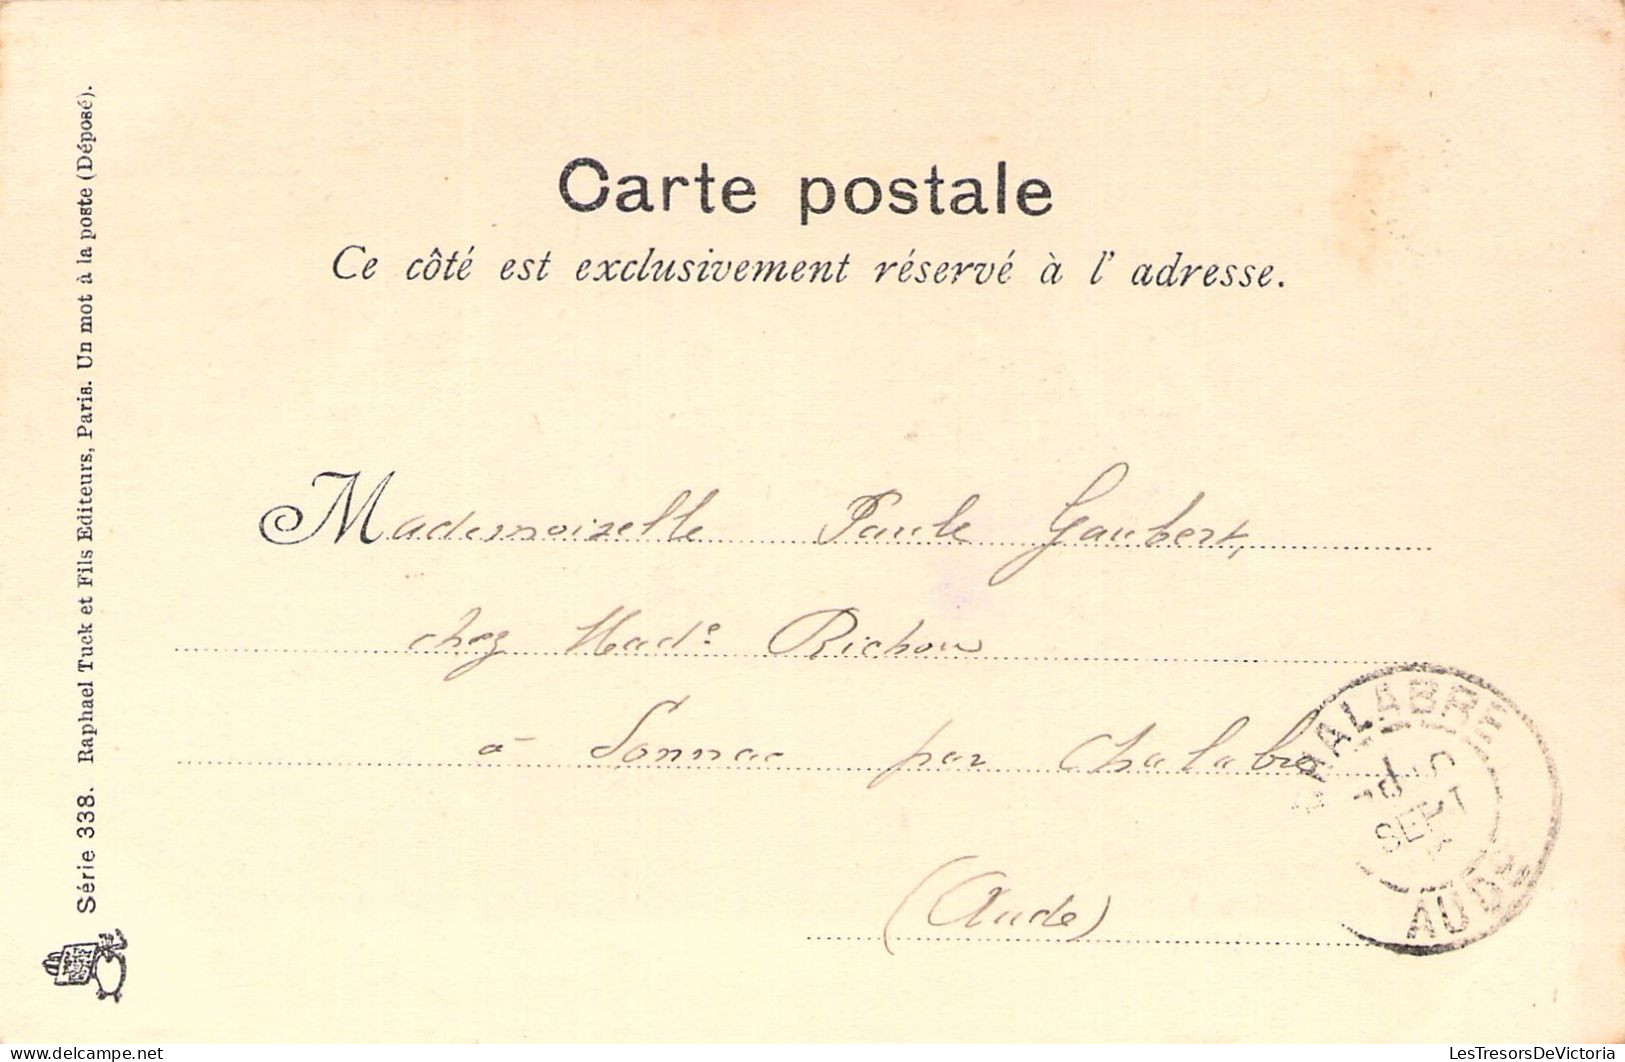 Carte postale
Ce côté est exclusivement réservé à l' adresse.
Mademoiselle Paule Gaubert,
chez Made Richou
à Sonnac par Chalabre
(Aude)
CHALABRE
SEPT
AUDE
Série 338. Raphael Tuck et Fils Editeurs, Paris. Un mot à la poste (Déposé).
LesTresorsDeVictoria
delcampe.net